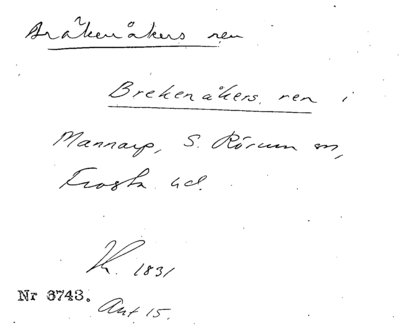 Bråkenåkers ren
Brekenåkers ren i
Mannarp, S. Rörum sn,
Frosta hd.
1831
Nr 3743.
Ant 15.